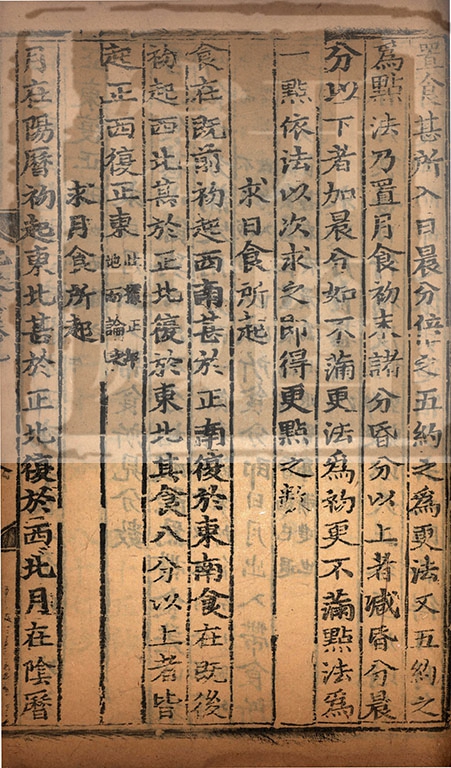 置食甚所入日晨分倍之五約之為更法又五約之
為點法乃置月食初末諸分昏分以上者减昏分晨
分以下者加晨分如不滿更法爲初更不滿點法爲
一點依法以次求之即得更點之數
求日食所起
食在既前初起西南甚於正南復於東南食在既後
初起西北甚於正北復於東北其食八分以上者皆
起正西復正東此據正午地而論之
求月食所起
月在陽曆初起東北甚於正北復於西北月在陰曆